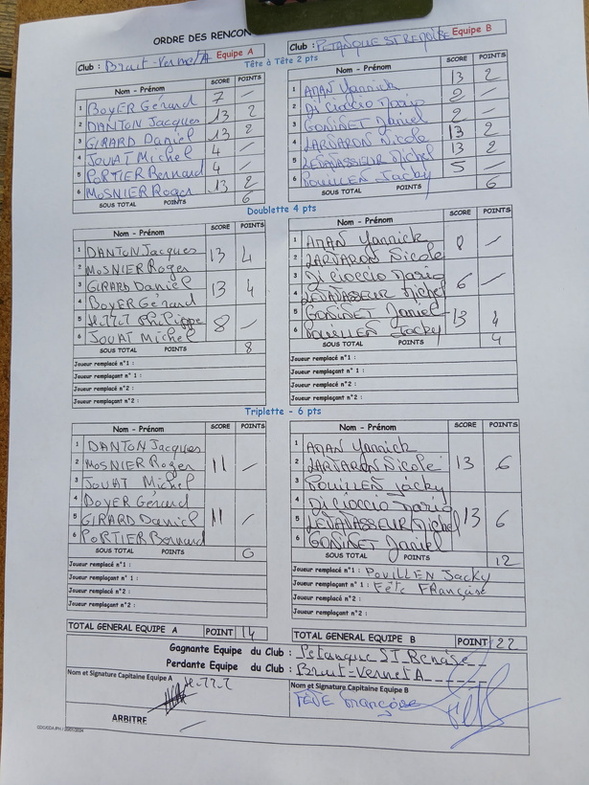 ORDRE DES RENCON
Club : Bruit-Vernet A Equipe A
Club : PETANQUE ST RENOISE Equipe B
Tête à Tête 2 pts
Nom - Prénom SCORE POINTS
1 BOYER Gérard 7 -
2 DANTON Jacques 13 2
3 GIRARD Daniel 13 2
4 JOUAT Michel 4 -
5 PORTIER Bernard 4 -
6 MOSNIER Roger 13 2
SOUS TOTAL POINTS 6
Nom - Prénom SCORE POINTS
1 AMAN Yannick 13 2
2 Di Cioccio Dario 2 -
3 GONINET Daniel 2 -
4 LARVARON Nicole 13 2
5 LEVAVASSEUR Michel 13 2
6 POUILLEN Jacky 5 -
SOUS TOTAL POINTS 6
Doublette 4 pts
Nom - Prénom SCORE POINTS
1 DANTON Jacques
2 MOSNIER Roger 13 4
3 GIRARD Daniel
4 BOYER Gérard 13 4
5 Philippe
6 JOUAT Michel 8 -
SOUS TOTAL POINTS 8
Joueur remplacé n°1 :
Joueur remplaçant n° 1 :
Joueur remplacé n°2 :
Joueur remplaçant n°2 :
Nom - Prénom SCORE POINTS
1 AMAN Yannick
2 LARVARON Nicole -
3 Di Cioccio Dario
4 LEVAVASSEUR Michel 6 -
5 GONINET Daniel
6 POUILLEN Jacky 13 4
SOUS TOTAL POINTS 4
Joueur remplacé n°1 :
Joueur remplaçant n°1 :
Joueur remplacé n°2 :
Joueur remplaçant n°2 :
Triplette - 6 pts
Nom - Prénom SCORE POINTS
1 DANTON Jacques
2 MOSNIER Roger 11 -
3 JOUAT Michel
4 BOYER Gérard
5 GIRARD Daniel 11 -
6 PORTIER Bernard
SOUS TOTAL POINTS 0
Joueur remplacé n°1 :
Joueur remplaçant n°1 :
Joueur remplacé n°2 :
Joueur remplaçant n°2 :
Nom - Prénom SCORE POINTS
1 AMAN Yannick
2 LARVARON Nicole 13 6
3 POUILLEN Jacky
4 Di Cioccio Dario
5 LEVAVASSEUR Michel 13 6
6 GONINET Daniel
SOUS TOTAL POINTS 12
Joueur remplacé n°1 : POUILLEN Jacky
Joueur remplaçant n°1 : Fête Française
Joueur remplacé n°2 :
Joueur remplaçant n°2 :
TOTAL GENERAL EQUIPE A POINT 14
TOTAL GENERAL EQUIPE B POINT 22
Gagnante Equipe du Club : Petanque ST Renoise
Perdante Equipe du Club : Bruit-Vernet A
Nom et Signature Capitaine Equipe A
Nom et Signature Capitaine Equipe B
FÊTE Françoise
ARBITRE -